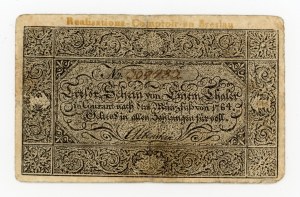 Realisations-Comptoir zu Breslau
No.
Tresor-Schein von Einem Thaler
in Courant nach dem Münzfuß von 1764.
Geltend in allen Zahlungen für voll.